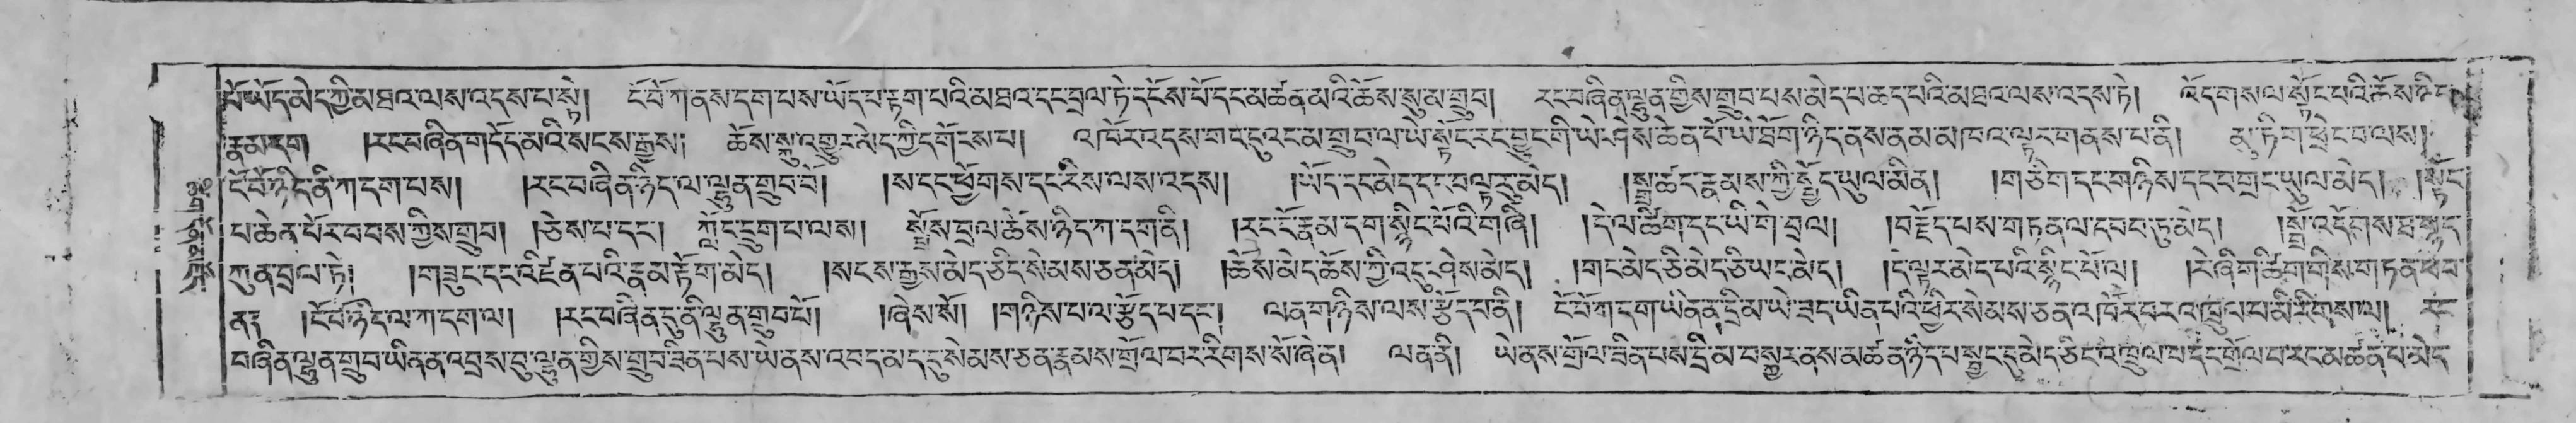 པོ་ཡོད་མེད་ཀྱི་མཐའ་ལས་འདས་པ་སྟེ། ངོ་བོ་ཀ་ནས་དག་པས་ཡོད་པ་རྟག་པའི་མཐའ་དང་བྲལ་ཏེ་དངོས་པོ་དང་མཚན་མའི་ཆོས་སུ་མ་གྲུབ། རང་བཞིན་ལྷུན་གྱིས་གྲུབ་པས་མེད་པ་ཆད་པའི་མཐའ་ལས་འདས་ཏེ། འོད་གསལ་སྟོང་པའི་ཆོས་ཉིད་
རྣམ་དག །རང་བཞིན་གདོད་མའི་སངས་རྒྱས། ཆོས་སྐུ་འགྱུར་མེད་ཀྱི་དགོངས་པ། འཁོར་འདས་གང་དུའང་མ་གྲུབ་ལ་ཡེ་སྟོང་རང་བྱུང་གི་ཡེ་ཤེས་ཆེན་པོ་ཡེ་ཐོག་ཉིད་ནས་ནམ་མཁའ་ལྟར་གནས་པ་ནི། མུ་ཏིག་ཕྲེང་བ་ལས།
ངོ་བོ་ཉིད་ནི་ཀ་དག་པས། །རང་བཞིན་ཉིད་ལ་ལྷུན་གྲུབ་པོ། །ས་དང་ཕྱོགས་དང་རིས་ལས་འདས། །ཡོད་དང་མེད་དང་བལྟ་རུ་མེད། །སྨྲ་ཚད་རྣམས་ཀྱི་སྤྱོད་ཡུལ་མིན། །གཅིག་དང་གཉིས་དང་བགྲང་ཡུལ་མེད། །སྟོང་
པ་ཆེན་པོར་བབས་ཀྱིས་གྲུབ། །ཅེས་པ་དང་། ཀློང་དྲུག་པ་ལས། སྤྲོས་བྲལ་ཆོས་ཉིད་ཀ་དག་ནི། །རང་ངོ་རྣམ་དག་སྙིང་པོའི་གཞི། །དེ་ལ་ཚིག་དང་ཡི་གེ་བྲལ། །བརྗོད་པས་གཏན་ལ་དབབ་ཏུ་མེད། །སྒྲོ་འདོགས་ཐ་སྙད་
ཀུན་བྲལ་ཏེ། །གཟུང་དང་འཛིན་པའི་རྣམ་རྟོག་མེད། །སངས་རྒྱས་མེད་ཅིང་སེམས་ཅན་མེད། །ཆོས་མེད་ཆོས་ཀྱི་འདུ་ཤེས་མེད། །གང་མེད་ཅི་མེད་ཅི་ཡང་མེད། །དེ་ལྟར་མེད་པའི་སྙིང་པོ་ལ། །རེ་ཞིག་ཚིག་གིས་གཏན་ཕབ་
ན། །ངོ་བོ་ཉིད་ལ་ཀ་དག་ལ། །རང་བཞིན་དུ་ནི་ལྷུན་གྲུབ་པོ། །ཞེས་སོ། །གཉིས་པ་ལ་རྩོད་པ་དང་། ལན་གཉིས་ལས་རྩོད་པ་ནི། ངོ་བོ་ཀ་དག་ཡིན་ན་དྲི་མ་ཡེ་ཟད་ཡིན་པའི་ཕྱིར་སེམས་ཅན་འཁོར་བར་འཁྲུལ་པ་མི་རིགས་ལ། རང་
བཞིན་ལྷུན་གྲུབ་ཡིན་ན་འབྲས་བུ་ལྷུན་གྱིས་གྲུབ་ཟིན་པས་ཡེ་ནས་འབད་མད་དུ་སེམས་ཅན་རྣམས་གྲོལ་བར་རིགས་སོ་ཞེ་ན། ལན་ནི། ཡེ་ནས་གྲོལ་ཟིན་པས་དྲི་མ་བསྐྱར་ནས་མཚན་ཉིད་པ་སྦྱང་དུ་མེད་ཅིང་འཁྲུལ་པ་དང་གྲོལ་བ་རང་མཚན་པ་མེད